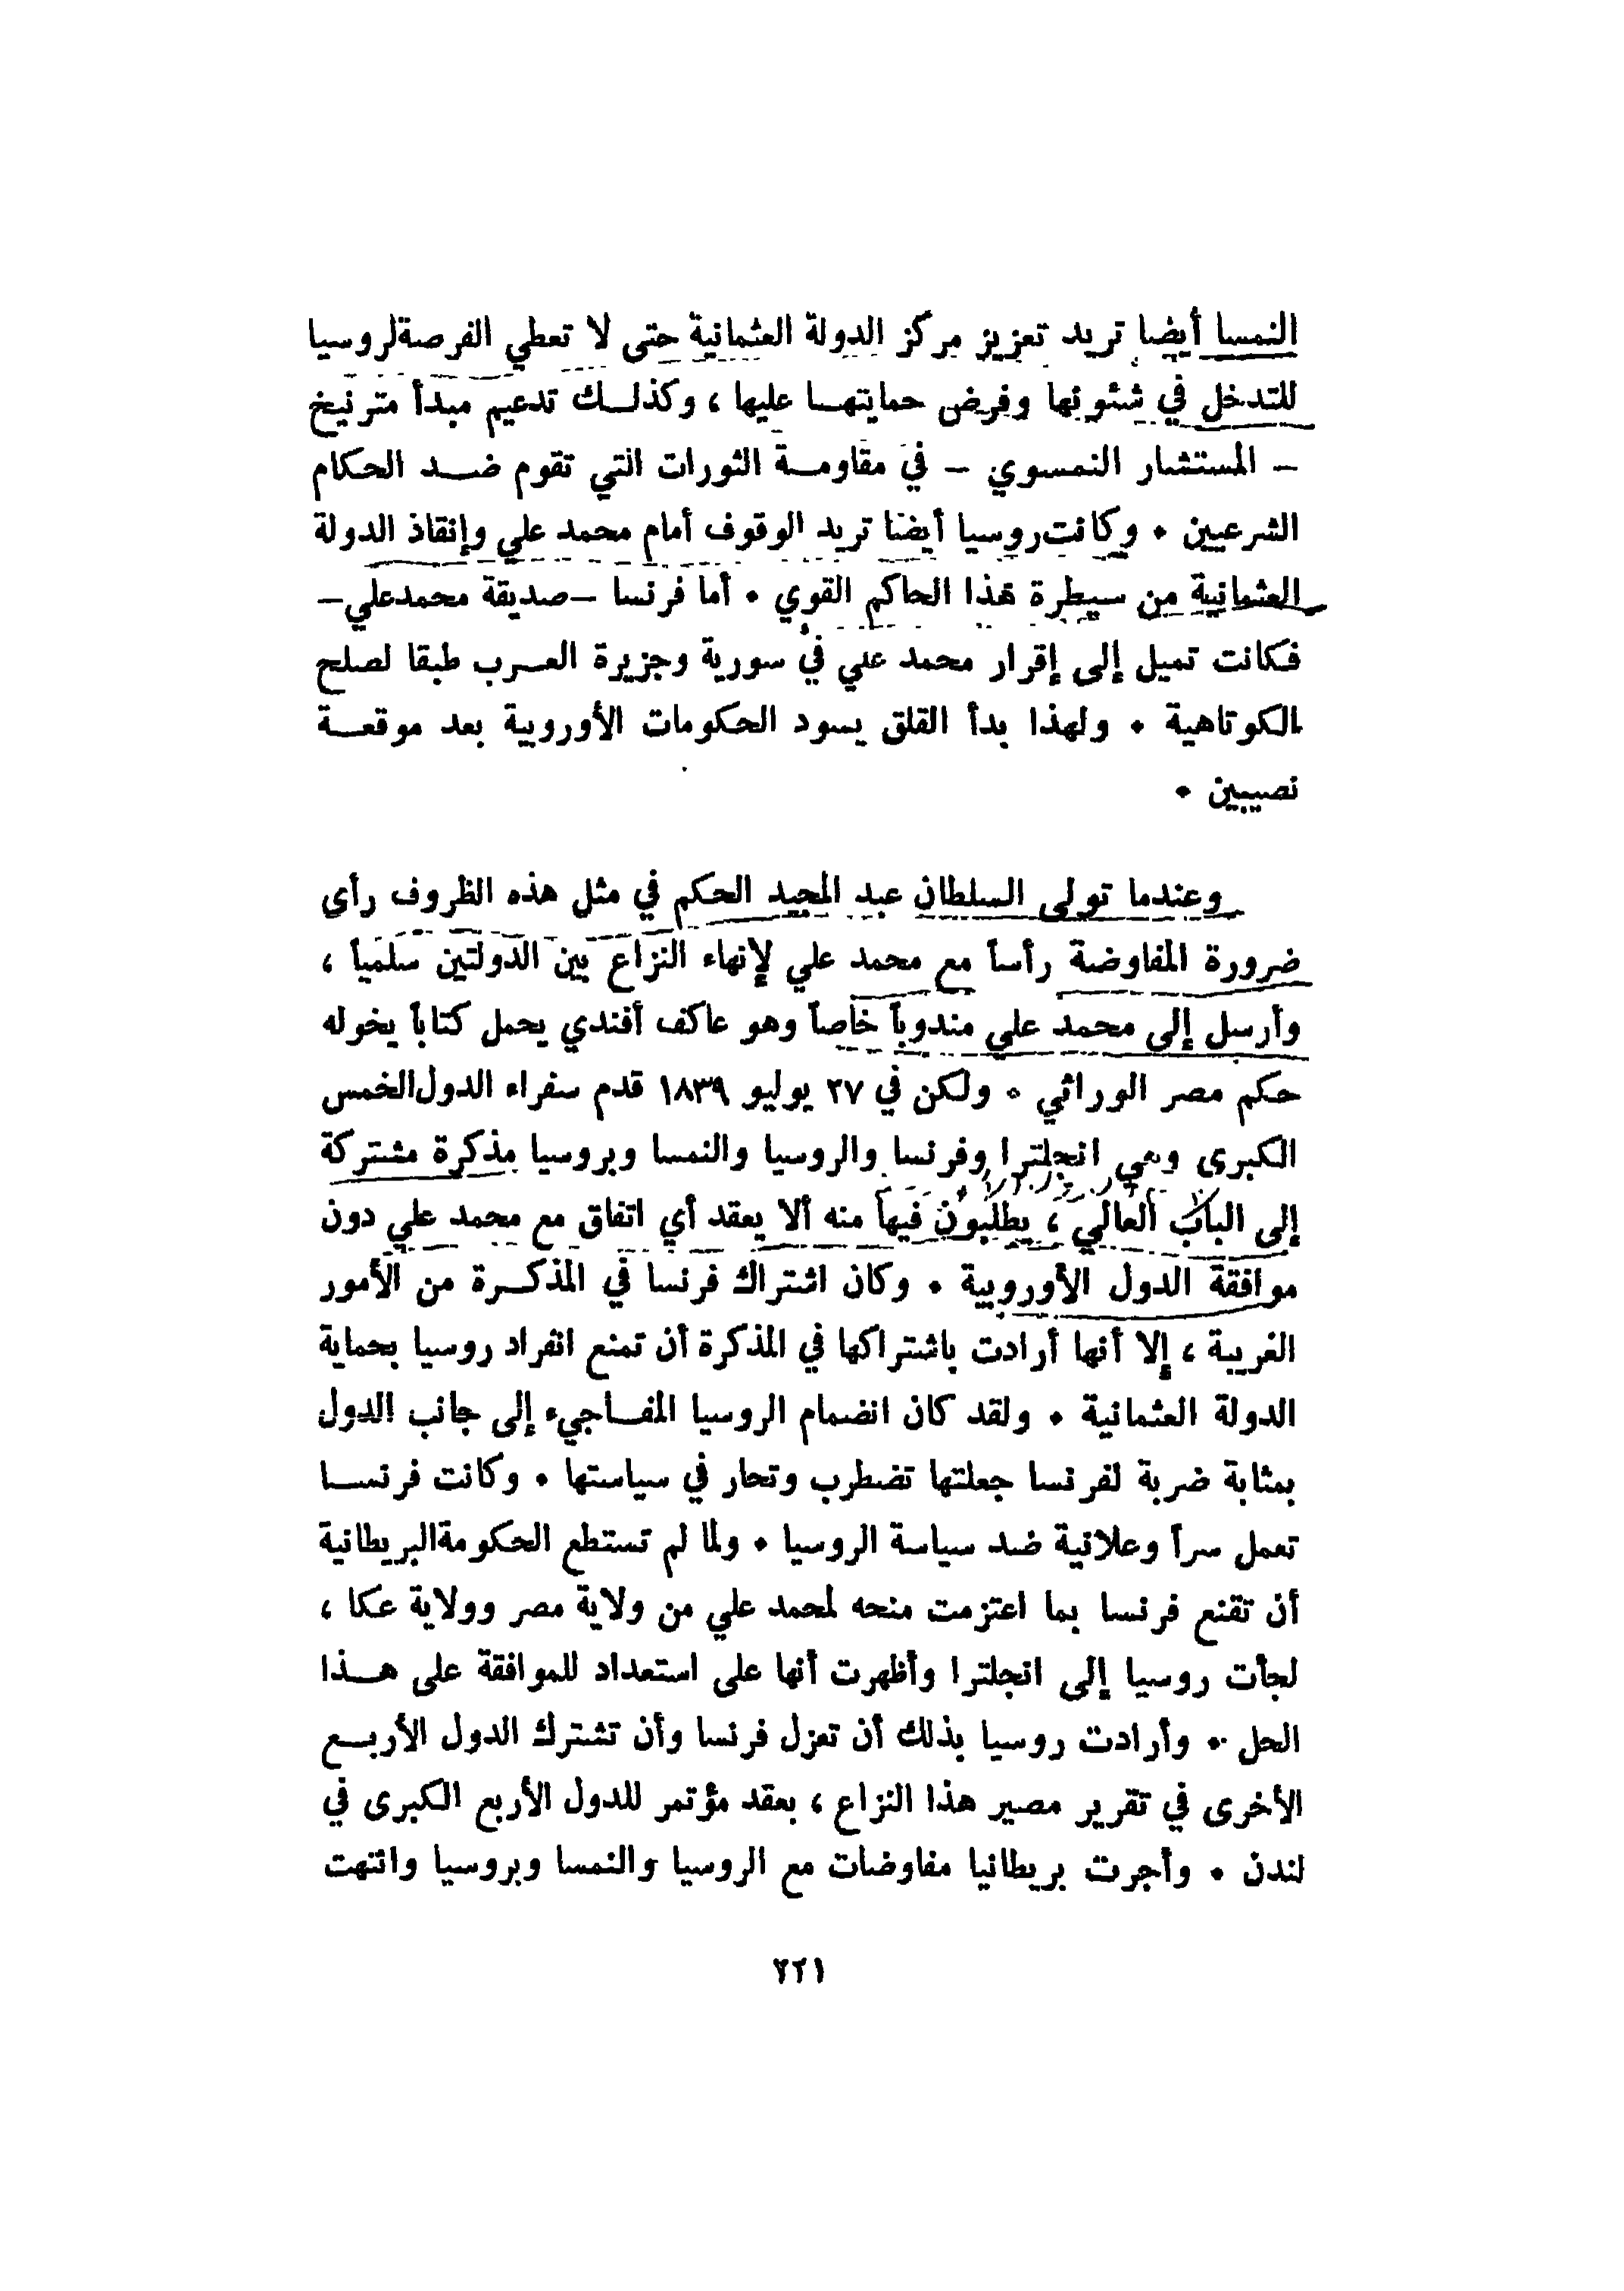 النمسا أيضا تريد تعزيز مركز الدولة العثمانية حتى لا تعطي الفرصةلروسيا
للتدخل في شئونها وفرض حمايتهـا عليها ، وكذلـك تدعيم مبدأ مترنيخ
– المستشار النمسوي – في مقاومـة الثورات التي تقوم ضـد الحكام
الشرعيين ٠ وكانت روسيا أيضا تريد الوقوف أمام محمد علي وإنقاذ الدولة
العثمانية من سيطرة هذا الحاكم القوي ٠ أما فرنسا –صديقة محمدعلي–
فكانت تميل إلى إقرار محمد علي في سورية وجزيرة العـرب طبقا لصلح
الكوتاهية ٠ ولهذا بدأ القلق يسود الحكومات الأوروبية بعد موقعـة
نصيبين ٠
وعندما تولى السلطان عبد المجيد الحكم في مثل هذه الظروف رأى
ضرورة المفاوضة رأساً مع محمد علي لإنهاء النزاع بين الدولتين سلمياً ،
وأرسل إلى محمد علي مندوباً خاصاً وهو عاكف أفندي يحمل كتاباً يخوله
حكم مصر الوراثي ٠ ولكن في ٢٧ يوليو ١٨٣٩ قدم سفراء الدول الخمس
الكبرى وهي انجلترا وفرنسا والروسيا والنمسا وبروسيا مذكرة مشتركة
إلى الباب العالي ، يطلبون فيها منه ألا يعقد أي اتفاق مع محمد علي دون
موافقة الدول الأوروبية ٠ وكان اشتراك فرنسا في المذكـرة من الأمور
الغريبة ، إلا أنها أرادت باشتراكها في المذكرة أن تمنع انفراد روسيا بحماية
الدولة العثمانية ٠ ولقد كان انضمام الروسيا المفـاجيء إلى جانب الدول
بمثابة ضربة لفرنسا جعلتها تضطرب وتحار في سياستها ٠ وكانت فرنسـا
تعمل سراً وعلانية ضد سياسة الروسيا ٠ ولما لم تستطع الحكومةالبريطانية
أن تقنع فرنسا بما اعتزمت منحه لمحمد علي من ولاية مصر وولاية عكا ،
لجأت روسيا إلى انجلترا وأظهرت أنها على استعداد للموافقة على هـذا
الحل ٠ وأرادت روسيا بذلك أن تعزل فرنسا وأن تشترك الدول الأربـع
الأخرى في تقرير مصير هذا النزاع ، بعقد مؤتمر للدول الأربع الكبرى في
لندن ٠ وأجرت بريطانيا مفاوضات مع الروسيا والنمسا وبروسيا وانتهت
٢٢١